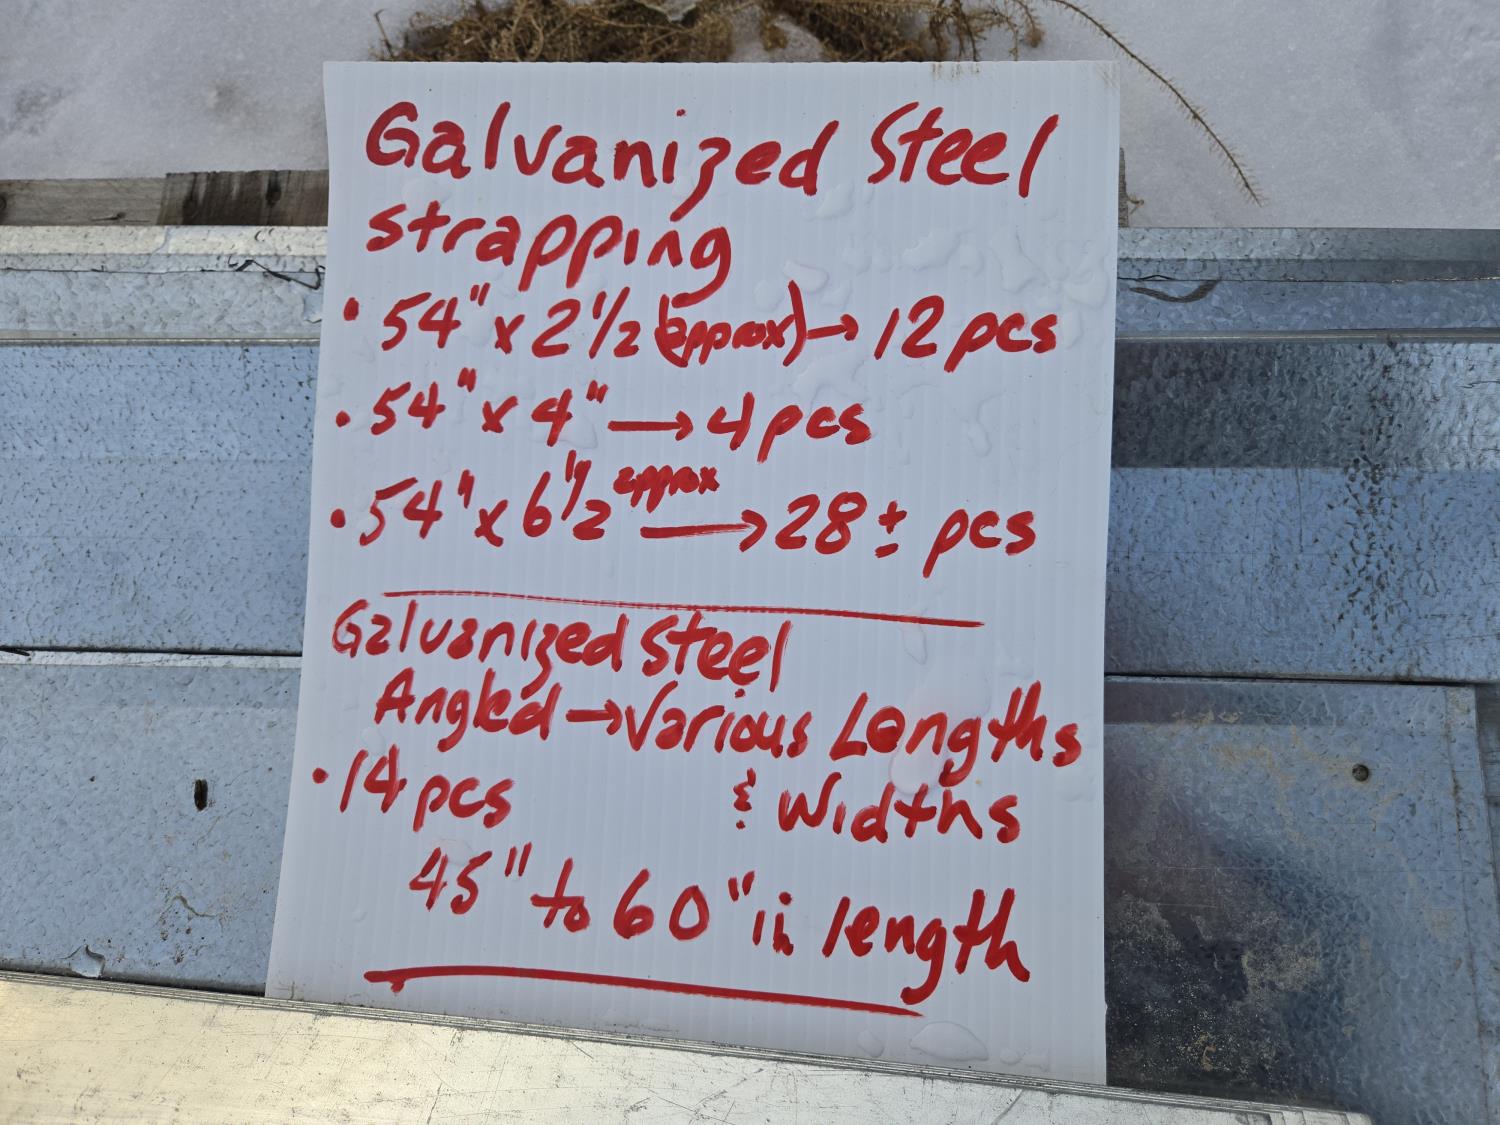 Galvanized Steel
strapping
• 54" x 2 1/2 (approx) → 12 pcs
• 54" x 4" → 4 pcs
• 54" x 6 1/2" approx → 28 ± pcs
Galvanized Steel
Angled → Various Lengths
• 14 pcs & Widths
45" to 60" in length